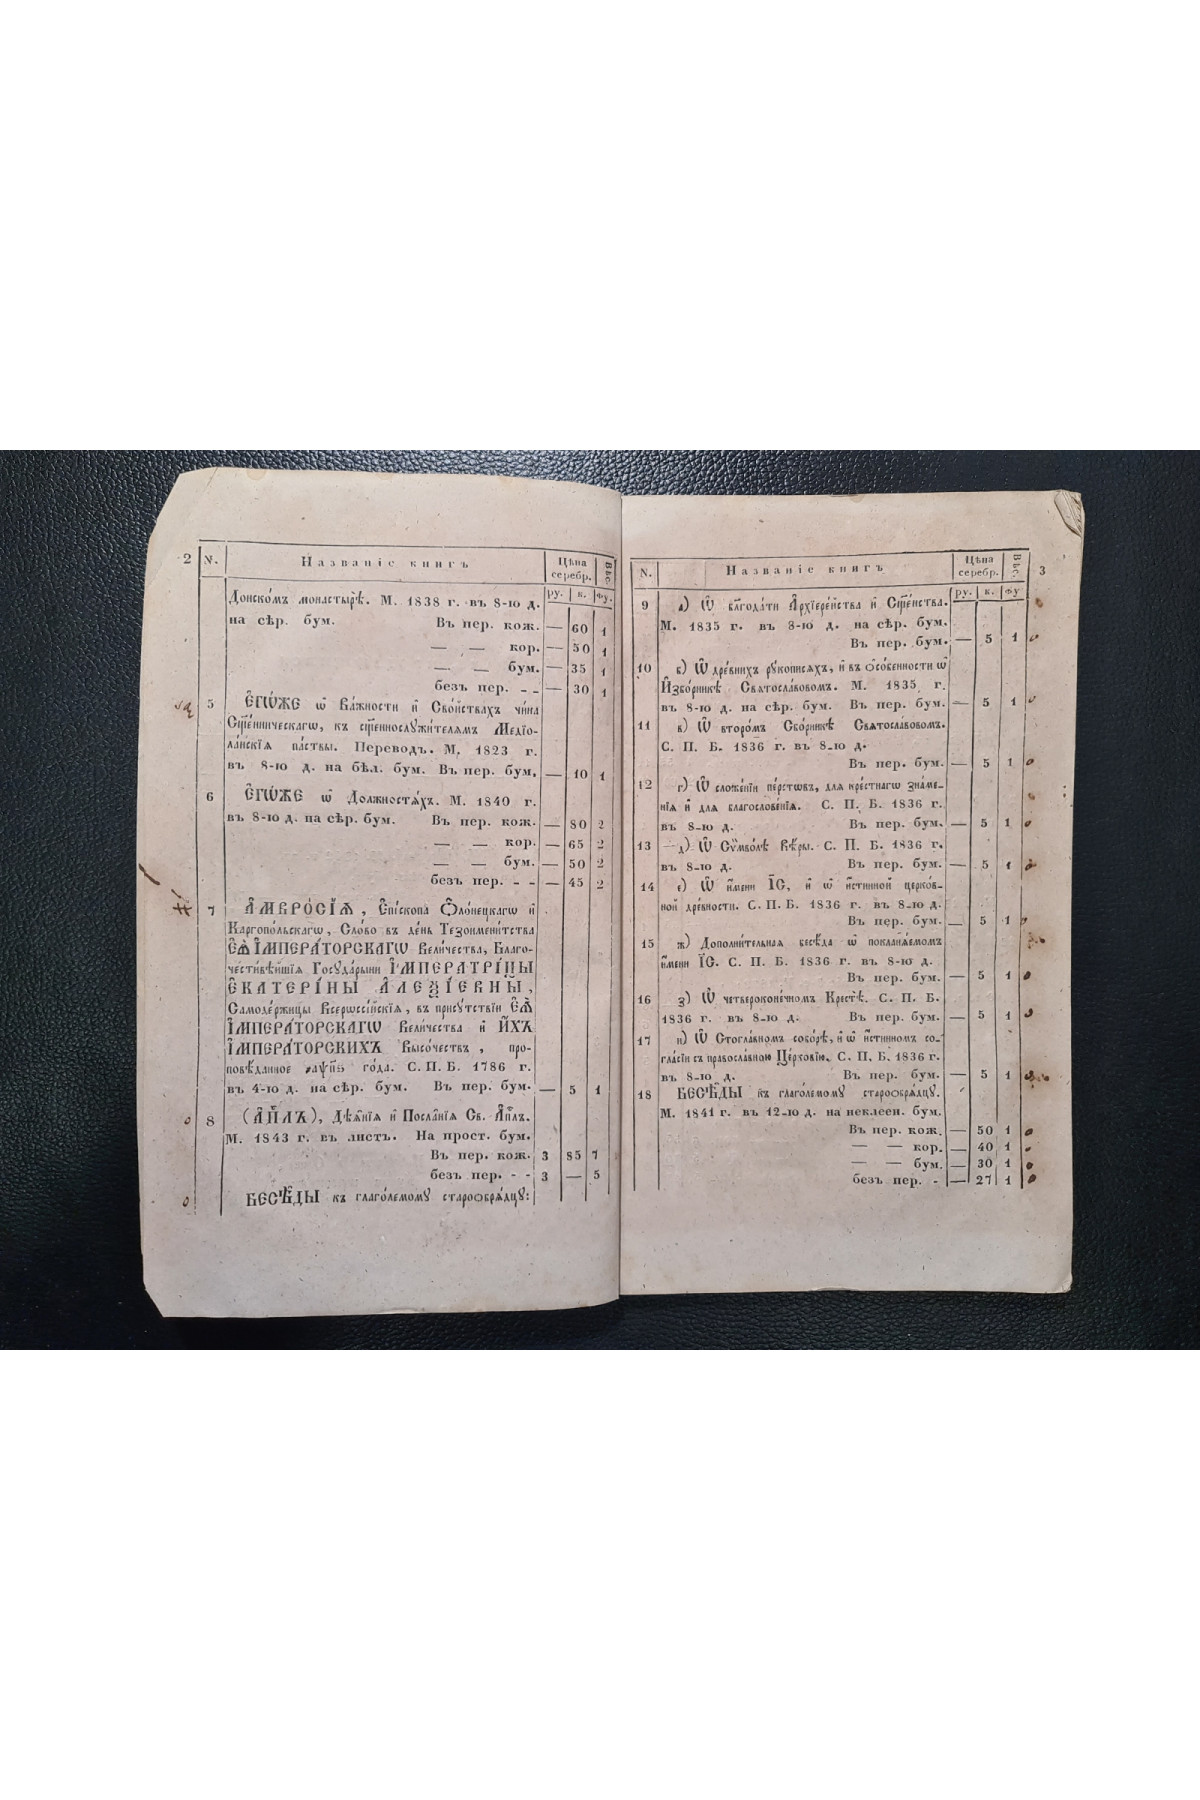 2 N. Названіе книгъ Цѣна серебр. Вѣс.
ру. к. фу.
Донско́мъ монастырѣ̀. М. 1838 г. въ 8-ю д.
на сѣр. бум. Въ пер. кож. — 60 1
— — кор. — 50 1
— — бум. — 35 1
безъ пер. - - — 30 1
5 Є҆гѡ́же ѡ҆ Ва́жности и҆ Сво́йствахъ чи́на
Сщ҃е́нническагѡ, къ сщ҃еннослужи́телямъ Медїо-
ла́нскїя па́ствы. Переводъ. М. 1823 г.
въ 8-ю д. на бѣл. бум. Въ пер. бум. — 10 1
6 Є҆гѡ́же ѡ҆ До́лжностяхъ. М. 1840 г.
въ 8-ю д. на сѣр. бум. Въ пер. кож. — 80 2
— — кор. — 65 2
— — бум. — 50 2
безъ пер. - - — 45 2
7 А҆МВРО́СІѦ, Є҆пи́скопа Ѻ҆лоне́цкагѡ и҆
Каргопо́льскагѡ, Сло́во въ де́нь Тезоимени́тства
Є҆Ѧ̀ І҆МПЕРА́ТОРСКАГѠ Вели́чества, Благо-
чести́вѣйшїя Госуда́рыни І҆МПЕРАТРИ́ЦЫ
Є҆КАТЕРИ́НЫ А҆ЛЕѮІ́ЕВНЫ,
Самоде́ржицы Всерѡссі́йскїя, въ прису́тствїи Є҆Ѧ̀
І҆МПЕРА́ТОРСКАГѠ Вели́чества и҆ И҆́ХЪ
І҆МПЕРА́ТОРСКИХЪ Высо́чествъ, про-
повѣ́данное ҂аѱп҃ѕ го́да. С. П. Б. 1786 г.
въ 4-ю д. на сѣр. бум. Въ пер. бум. — 5 1
8 (А҆П҃ЛЪ), Дѣѧ̑нїя и҆ Посла̑нїя Св. А҆п҃лъ.
М. 1843 г. въ листъ. На прост. бум.
Въ пер. кож. 3 85 7
безъ пер. - - 3 — 5
БЕСѢ́ДЫ къ глаго́лемому старообрѧ́дцу:
N. Названіе книгъ Цѣна серебр. Вѣс. 3
ру. к. фу
9 а) Ѡ҆ благода́ти А҆рхїере́йства и҆ Сщ҃е́нства.
М. 1835 г. въ 8-ю д. на сѣр. бум.
Въ пер. бум. — 5 1
10 б) Ѡ҆ дре́внихъ ру́кописяхъ, и҆ въ ѻ҆со́бенности ѡ҆
И҆збо́рникѣ Свѧтосла́вовомъ. М. 1835 г.
въ 8-ю д. на сѣр. бум. Въ пер. бум. — 5 1
11 в) Ѡ҆ второ́мъ Сбо́рникѣ Свѧтосла́вовомъ.
С. П. Б. 1836 г. въ 8-ю д.
Въ пер. бум. — 5 1
12 г) Ѡ҆ сложе́нїи пе́рстѡвъ, для кре́стнагѡ зна́ме-
нїя и҆ для благослове́нїя. С. П. Б. 1836 г.
въ 8-ю д. Въ пер. бум. — 5 1
13 д) Ѡ҆ Сѷ́мволѣ Вѣ́ры. С. П. Б. 1836 г.
въ 8-ю д. Въ пер. бум. — 5 1
14 е) Ѡ҆ и҆́мени І҆С, и҆ ѡ҆ и҆́стинной церко́в-
ной дре́вности. С. П. Б. 1836 г. въ 8-ю д.
Въ пер. бум. — 5 1
15 ж) Дополни́тельная бесѣ́да ѡ҆ покланѧ́емомъ
и҆́мени І҆С. С. П. Б. 1836 г. въ 8-ю д.
Въ пер. бум. — 5 1
16 з) Ѡ҆ четвероконе́чномъ Кре́стѣ. С. П. Б.
1836 г. въ 8-ю д. Въ пер. бум. — 5 1
17 и) Ѡ҆ Стогла́вномъ собо́рѣ, и҆ ѡ҆ и҆́стинномъ со-
гла́сїи съ правосла́вною Це́рковїю. С. П. Б. 1836 г.
въ 8-ю д. Въ пер. бум. — 5 1
18 БЕСѢ́ДЫ къ глаго́лемому старообрѧ́дцу.
М. 1841 г. въ 12-ю д. на неклеен. бум.
Въ пер. кож. — 50 1
— — кор. — 40 1
— — бум. — 30 1
безъ пер. - — 27 1